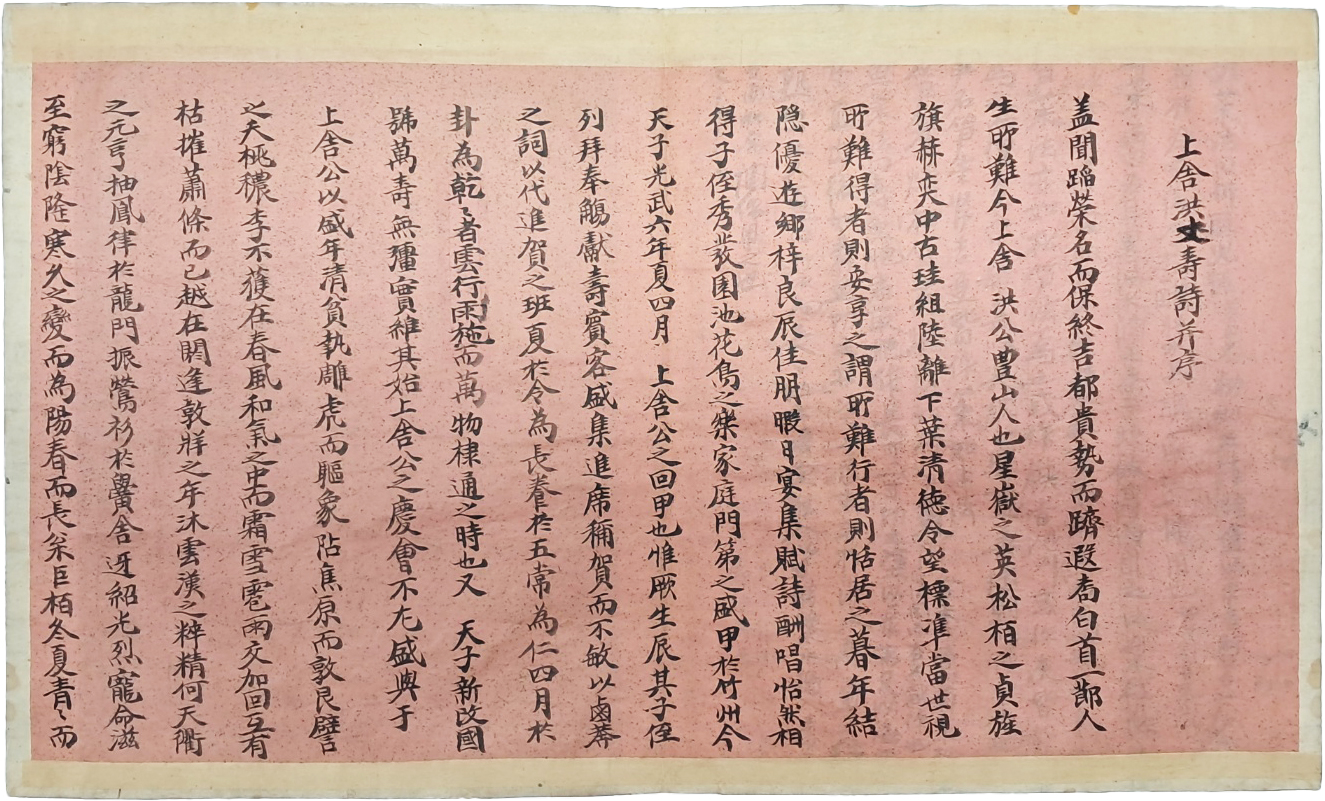 上舍洪丈壽詩并序
盖聞蹈榮名而保終吉都貴勢而躋遐耇白首一鄰人
生所難今上舍 洪公豊山人也星嶽之英松栢之貞旌
旗赫奕中古珪組陸離下葉清德令望標準當世視
所難得者則妥享之謂所難行者則恬居之暮年結
隐優遊鄉梓良辰佳朋暇日宴集賦詩酬唱怡然相
得子侄秀發園池花鳥之樂家庭門第之盛甲於竹州今
天子光武六年夏四月 上舍公之回甲也惟厥生辰其子侄
列拜奉觴獻壽賓客盛集進席稱賀而不敏以鹵莽
之詞以代進賀之班夏於令為長養於五常為仁四月於
卦為乾〻者雲行雨施而萬物棣通之時也又 天子新改國
號萬壽無疆實維其始上舍公之慶會不尤盛與于
上舍公以盛年清貧執雕虎而軀象阽焦原而敦艮譬
之夭桃穠李不獲在春風和氣之中而霜雪雹雨交加回互有
枯摧蕭條而已越在閼逢敦牂之年沐雲漢之粹精何天衢
之元亨抽鳳律於龍門振鶯衫於黌舍迓紹光烈寵命滋
至窮陰隆寒久之變而為陽春而長松巨栢冬夏青〻而